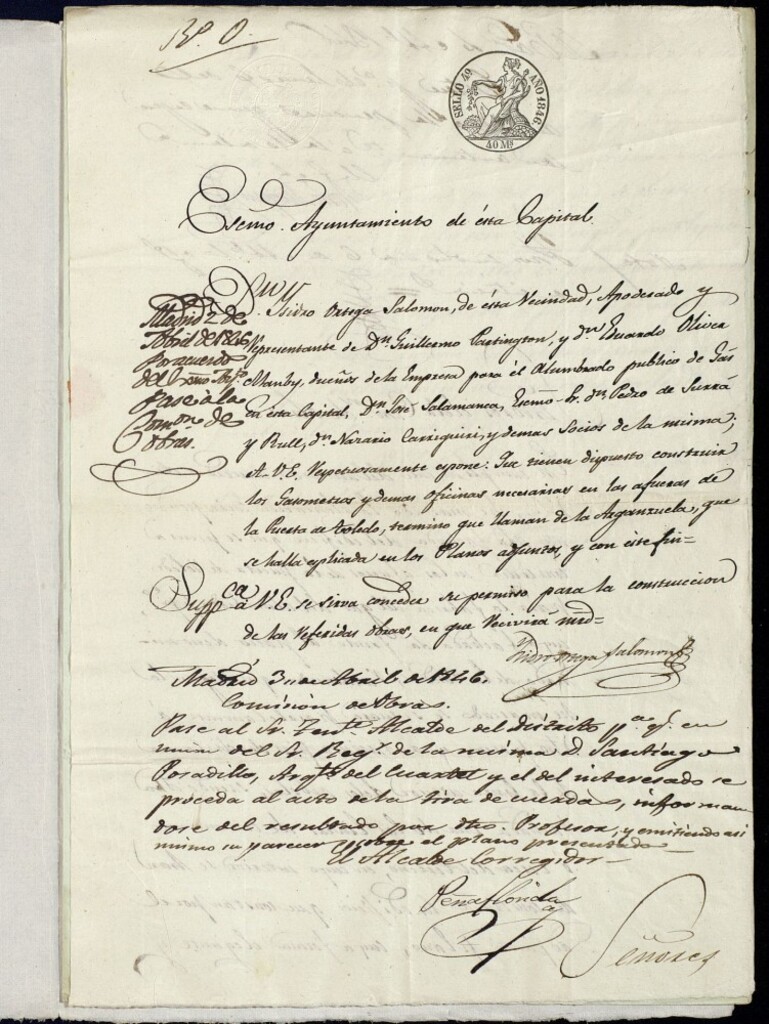 Rº. O.
SELLO 4º AÑO 1846
40 Mˢ
Escmo. Ayuntamiento de ésta Capital.
Dⁿ Ysidro Ortega Salomon, de ésta Vecindad, Apoderado y
Representante de Dⁿ Guillermo Partington, y dⁿ Eduardo Oliver
Manby, dueños de la Empresa para él Alumbrado publico de Gas
en ésta Capital, Dⁿ José Salamanca, Escmo. Sr. dⁿ Pedro de Surrá
y Rull, dⁿ Nazario Carriquiri, y demas Socios de la misma;
A. V. E. Respetuosamente espone: Que tienen dispuesto construir
los Gasometros y demas Oficinas necesarias en las afueras de
la Puerta de Toledo, termino que llaman de la Arganzuela, que
se halla esplicada en los Planos adjuntos, y con éste fin=
Suppᶜᵃ á V. E. se sirva conceder su permiso para la construccion
de las Referidas Obras, en que Recivirá mrd=
Ysidro Ortega Salomon
Madrid 2 de
Abril de 1846
Por acuerdo
del Escmo Aytᵒ
Pase à la
Comᵒⁿ de
Obras.
Madrid 3 de Abril de 1846.
Comision de Obras.
Pase al Sr. Tentᵉ Alcalde del Distrito pᵃ qᵉ en
union del Sr. Regʳ de la misma D. Santiago
Posadillo, Arqᵗᵒ del Cuartel y el del interesado se
proceda al acto de la tira de cuerdas, informan
dose del resultado por dho. Profesor, y emitiendo asi
mismo su parecer sobre el plano presentado
El Alcalde Corregidor
Peñaflorida
Señores